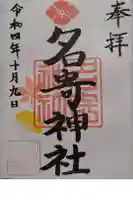 奉拝
名寄神社
令和四年十月九日